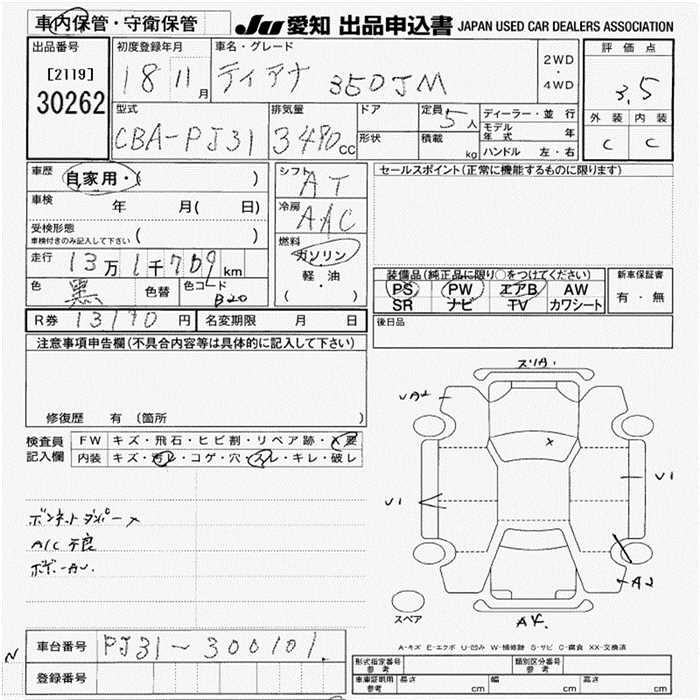 車内保管・守衛保管
JU 愛知 出品申込書 JAPAN USED CAR DEALERS ASSOCIATION
出品番号
[2119]
30262
初度登録年月
18 11月
車名・グレード
ティアナ 350JM
2WD
・
4WD
評価点
3.5
外装 内装
C C
型式
CBA-PJ31
排気量
3490cc
ドア
形状
定員 5人
積載 kg
ディーラー・並行
モデル年式 年
ハンドル 左・右
車歴
自家用・( )
車検 年 月( 日)
受検形態
車検付きのみ記入して下さい ( )
走行 13万1千709km
色 黒 色替 色コード B20
R券 13170円 名変期限 月 日
シフト
AT
冷房
AAC
燃料
ガソリン
軽・油
( )
セールスポイント(正常に機能するものに限ります)
装備品(純正品に限り○をつけてください)
PS PW エアB AW
SR ナビ TV カワシート
新車保証書
有・無
後日品
注意事項申告欄(不具合内容等は具体的に記入して下さい)
修復歴 有 〔箇所 〕
検査員
記入欄
FW キズ・飛石・ヒビ割・リペア跡・X要
内装 キズ・汚レ・コゲ・穴・スレ・キレ・破レ
ボンネットダンパーX
A/C不良
スリキ.
A2
X
V1
V1
A2
スペア
A4.
A-キズ E-エクボ U-凹み W-補修跡 S-サビ C-腐食 XX-交換済
N
車台番号 PJ31-300101
登録番号
形式指定番号
参考
類別区分番号
参考
車庫証明用
参考
長さ cm 幅 cm 高さ cm